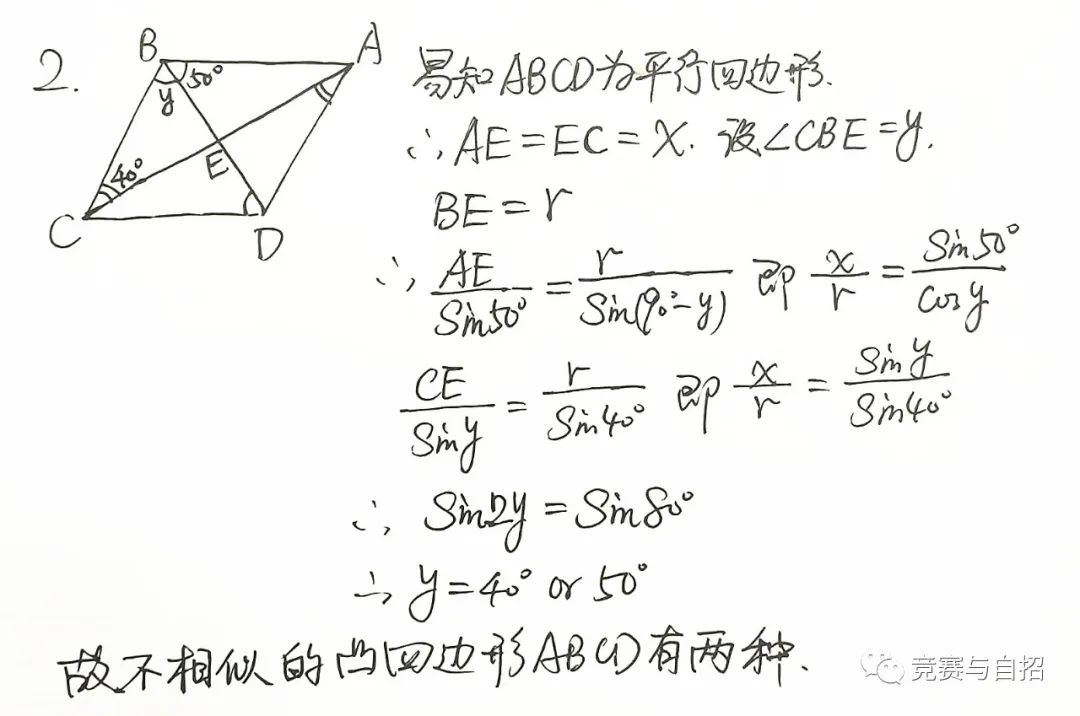 2.
B
A
50°
y
E
40°
C
D
易知ABCD为平行四边形.
∴ AE=EC=x. 设∠CBE=y.
BE=r
∴ AE/Sin50° = r/Sin(90°-y) 即 x/r = Sin50°/cosy
CE/Siny = r/Sin40° 即 x/r = Siny/Sin40°
∴ Sin2y=Sin80°
∴ y=40° or 50°
故不相似的凸四边形ABCD有两种.
竞赛与自招